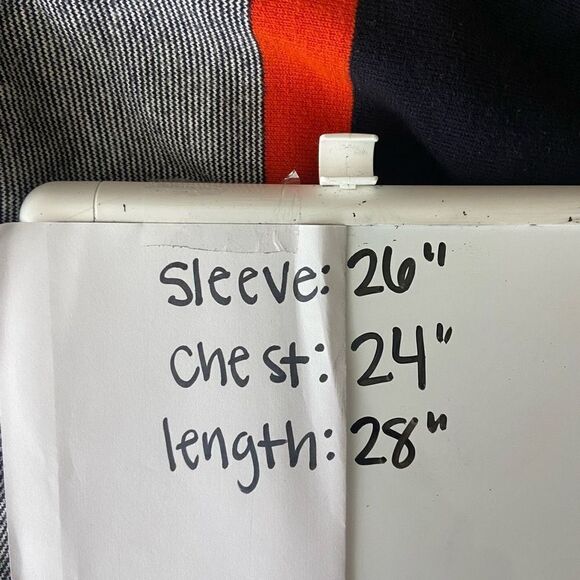 sleeve: 26"
chest: 24"
length: 28"